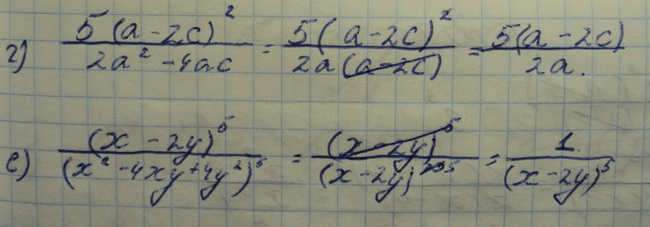 г) 5(a-2c)²/(2a²-4ac) = 5(a-2c)²/(2a(a-2c)) = 5(a-2c)/(2a).
е) (x-2y)⁵/(x²-4xy+4y²)⁵ = (x-2y)⁵/(x-2y)²*⁵ = 1/(x-2y)⁵